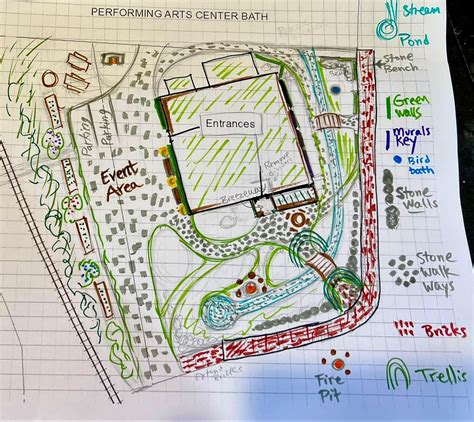 PERFORMING ARTS CENTER BATH
Stream
Pond
Stone
Bench
Green
walls
Murals
Key
Bird
bath
Stone
Walls
Stone
Walk
Ways
Bricks
Trellis
Fire
Pit
Entrances
Parking
Parking
Event
Area
Breezeway
Bricks